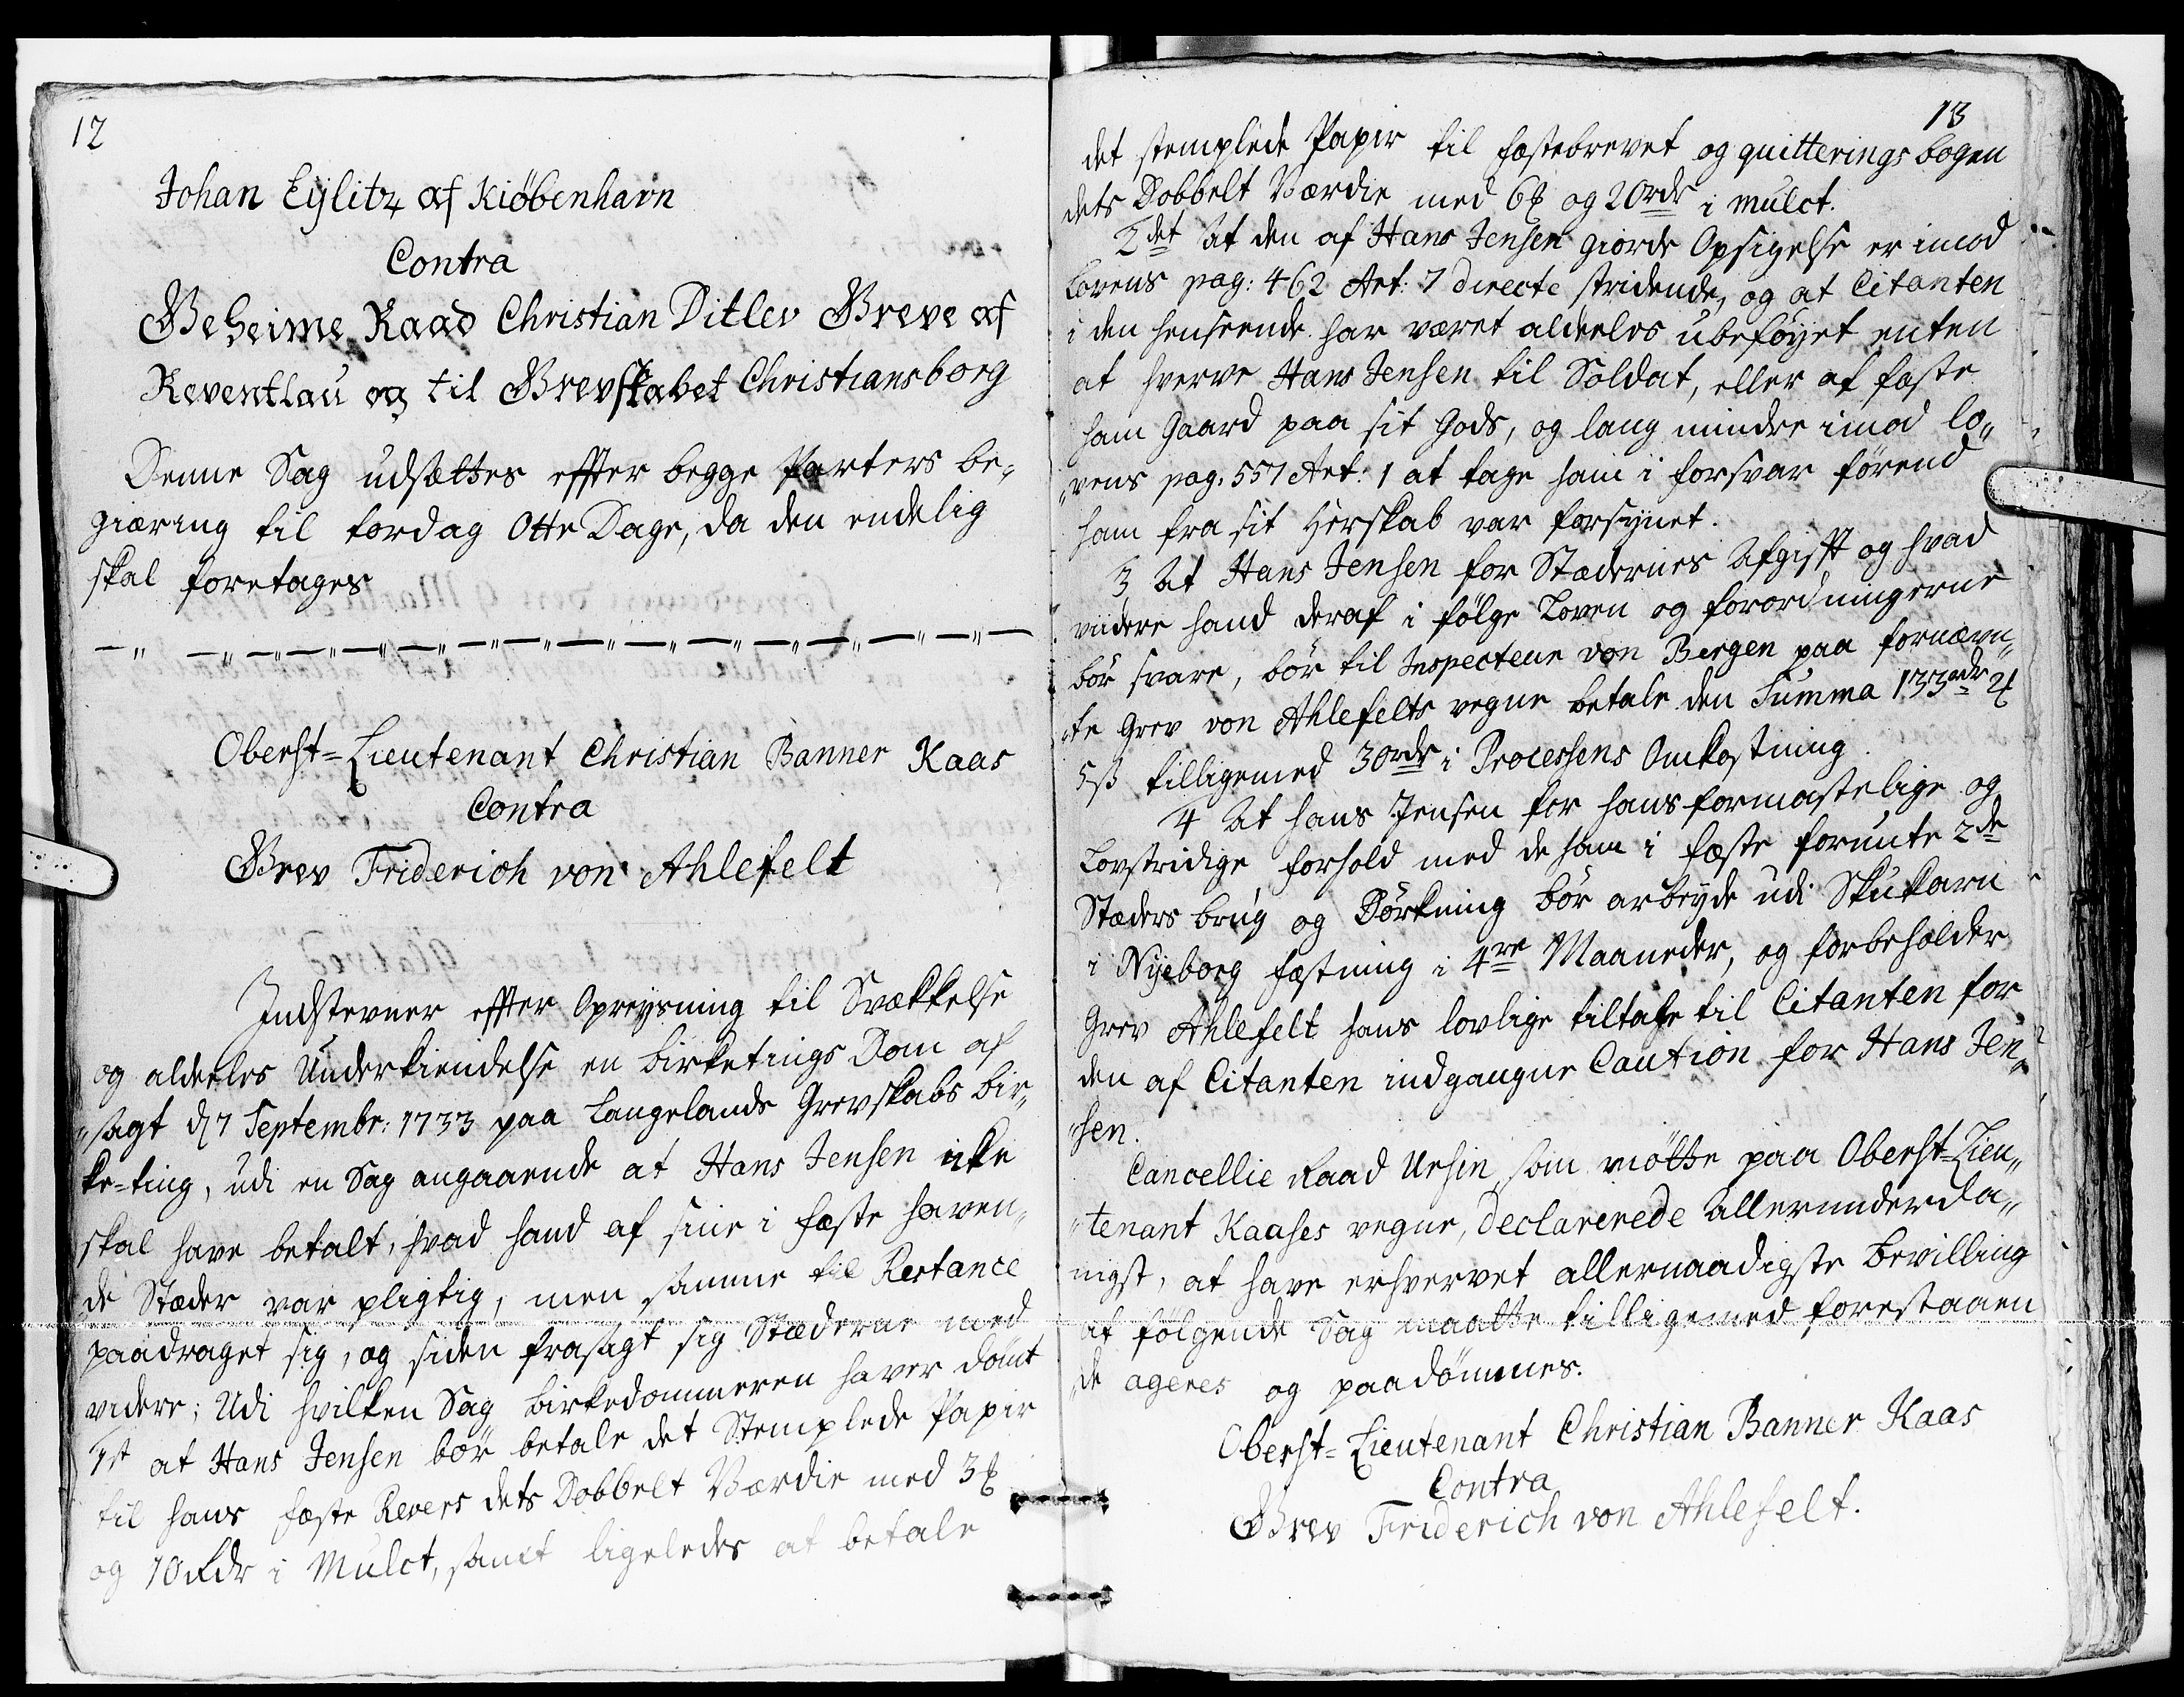 12
Johan Eylitz af Kiöbenhavn
Contra
Geheime Raad Christian Ditlev Greve af
Reventlau og til Grevskabet Christiansborg
Denne Sag udsættes effter begge Parters be-
giæring til torsdag Otte Dage, da den endelig
skal foretages
Oberst-Lieutenant Christian Banner Kaas
Contra
Grev Friderich von Ahlefelt
Indstevner effter Opreysning til Svækkelse
og aldeeles Underkiendelse en birketings Dom af
"sagt d 7 Septembr: 1733 paa Langelands Grevskabs bir„
ke-ting, udi en Sag angaaende at Hans Jensen icke
skal have betalt, hvad hand af sine i fæste haven„
de Stæder var pligtig, men samme til Restance
paadraget sig, og siden frasagt sig Stæderne med
videre; Udi hvilken Sag birkedommeren haver dömt
1st at Hans Jensen bör betale det Stemplede Papir
til hans fæste Revers dets Dobbelt Værdie med 3 ꝑ
og 10 Rdr i Mulct, samt ligeledes at betale
13
det stemplede Papir til fæstebrevet og quitterings bogen
dets Dobbelt Værdie med 6 ꝑ og 20 rdr i mulct.
2det At den af Hans Jensen giorde Opsigelse er imod
Lovens pag: 462 Art: 7 directe stridende, og at Citanten
i den henseende har været aldeeles ubeföyet enten
at hverve Hans Jensen til Soldat, eller at fæste
ham Gaard paa sit Gods, og lang mindre imod lo„
"vens pag. 557 Art: 1 at tage ham i forsvar förend
ham fra sit Herskab var forsynet.
3 At Hans Jensen for Stædernes Afgifft og hvad
videre hand deraf i fölge Loven og forordningerne
bör svare, bör til Inspecteur von Bergen paa fornævn„
"te Grev von Ahlefelts vegne betale den Summa 133 rdr 4
5 ß tilligemed 30 rdr i Processens Omkostning.
4 At Hans Jensen for hans formastelige og
Lovstridige forhold med de ham i fæste forundte 2de
Stæders brug og Dörkning bör arbeyde udi Skubkarn
i Nyeborg fæstning i 4re Maaneder, og forbeholder
Grev Ahlefelt hans lovlige tiltale til Citanten for
den af Citanten indgangne Caution for Hans Jen„
"sen.
Cancellie Raad Ursin, som mötte paa Oberst-Lieu„
"tenant Kaases vegne, declarerede allerunderda„
nigst, at have erhvervet allernaadigste bevilling
at fölgende Sag maatte tilligemed forestaaen
de ageres og paadömmes.
Oberst-Lieutenant Christian Banner Kaas
Contra
Grev Friderich von Ahlefelt.